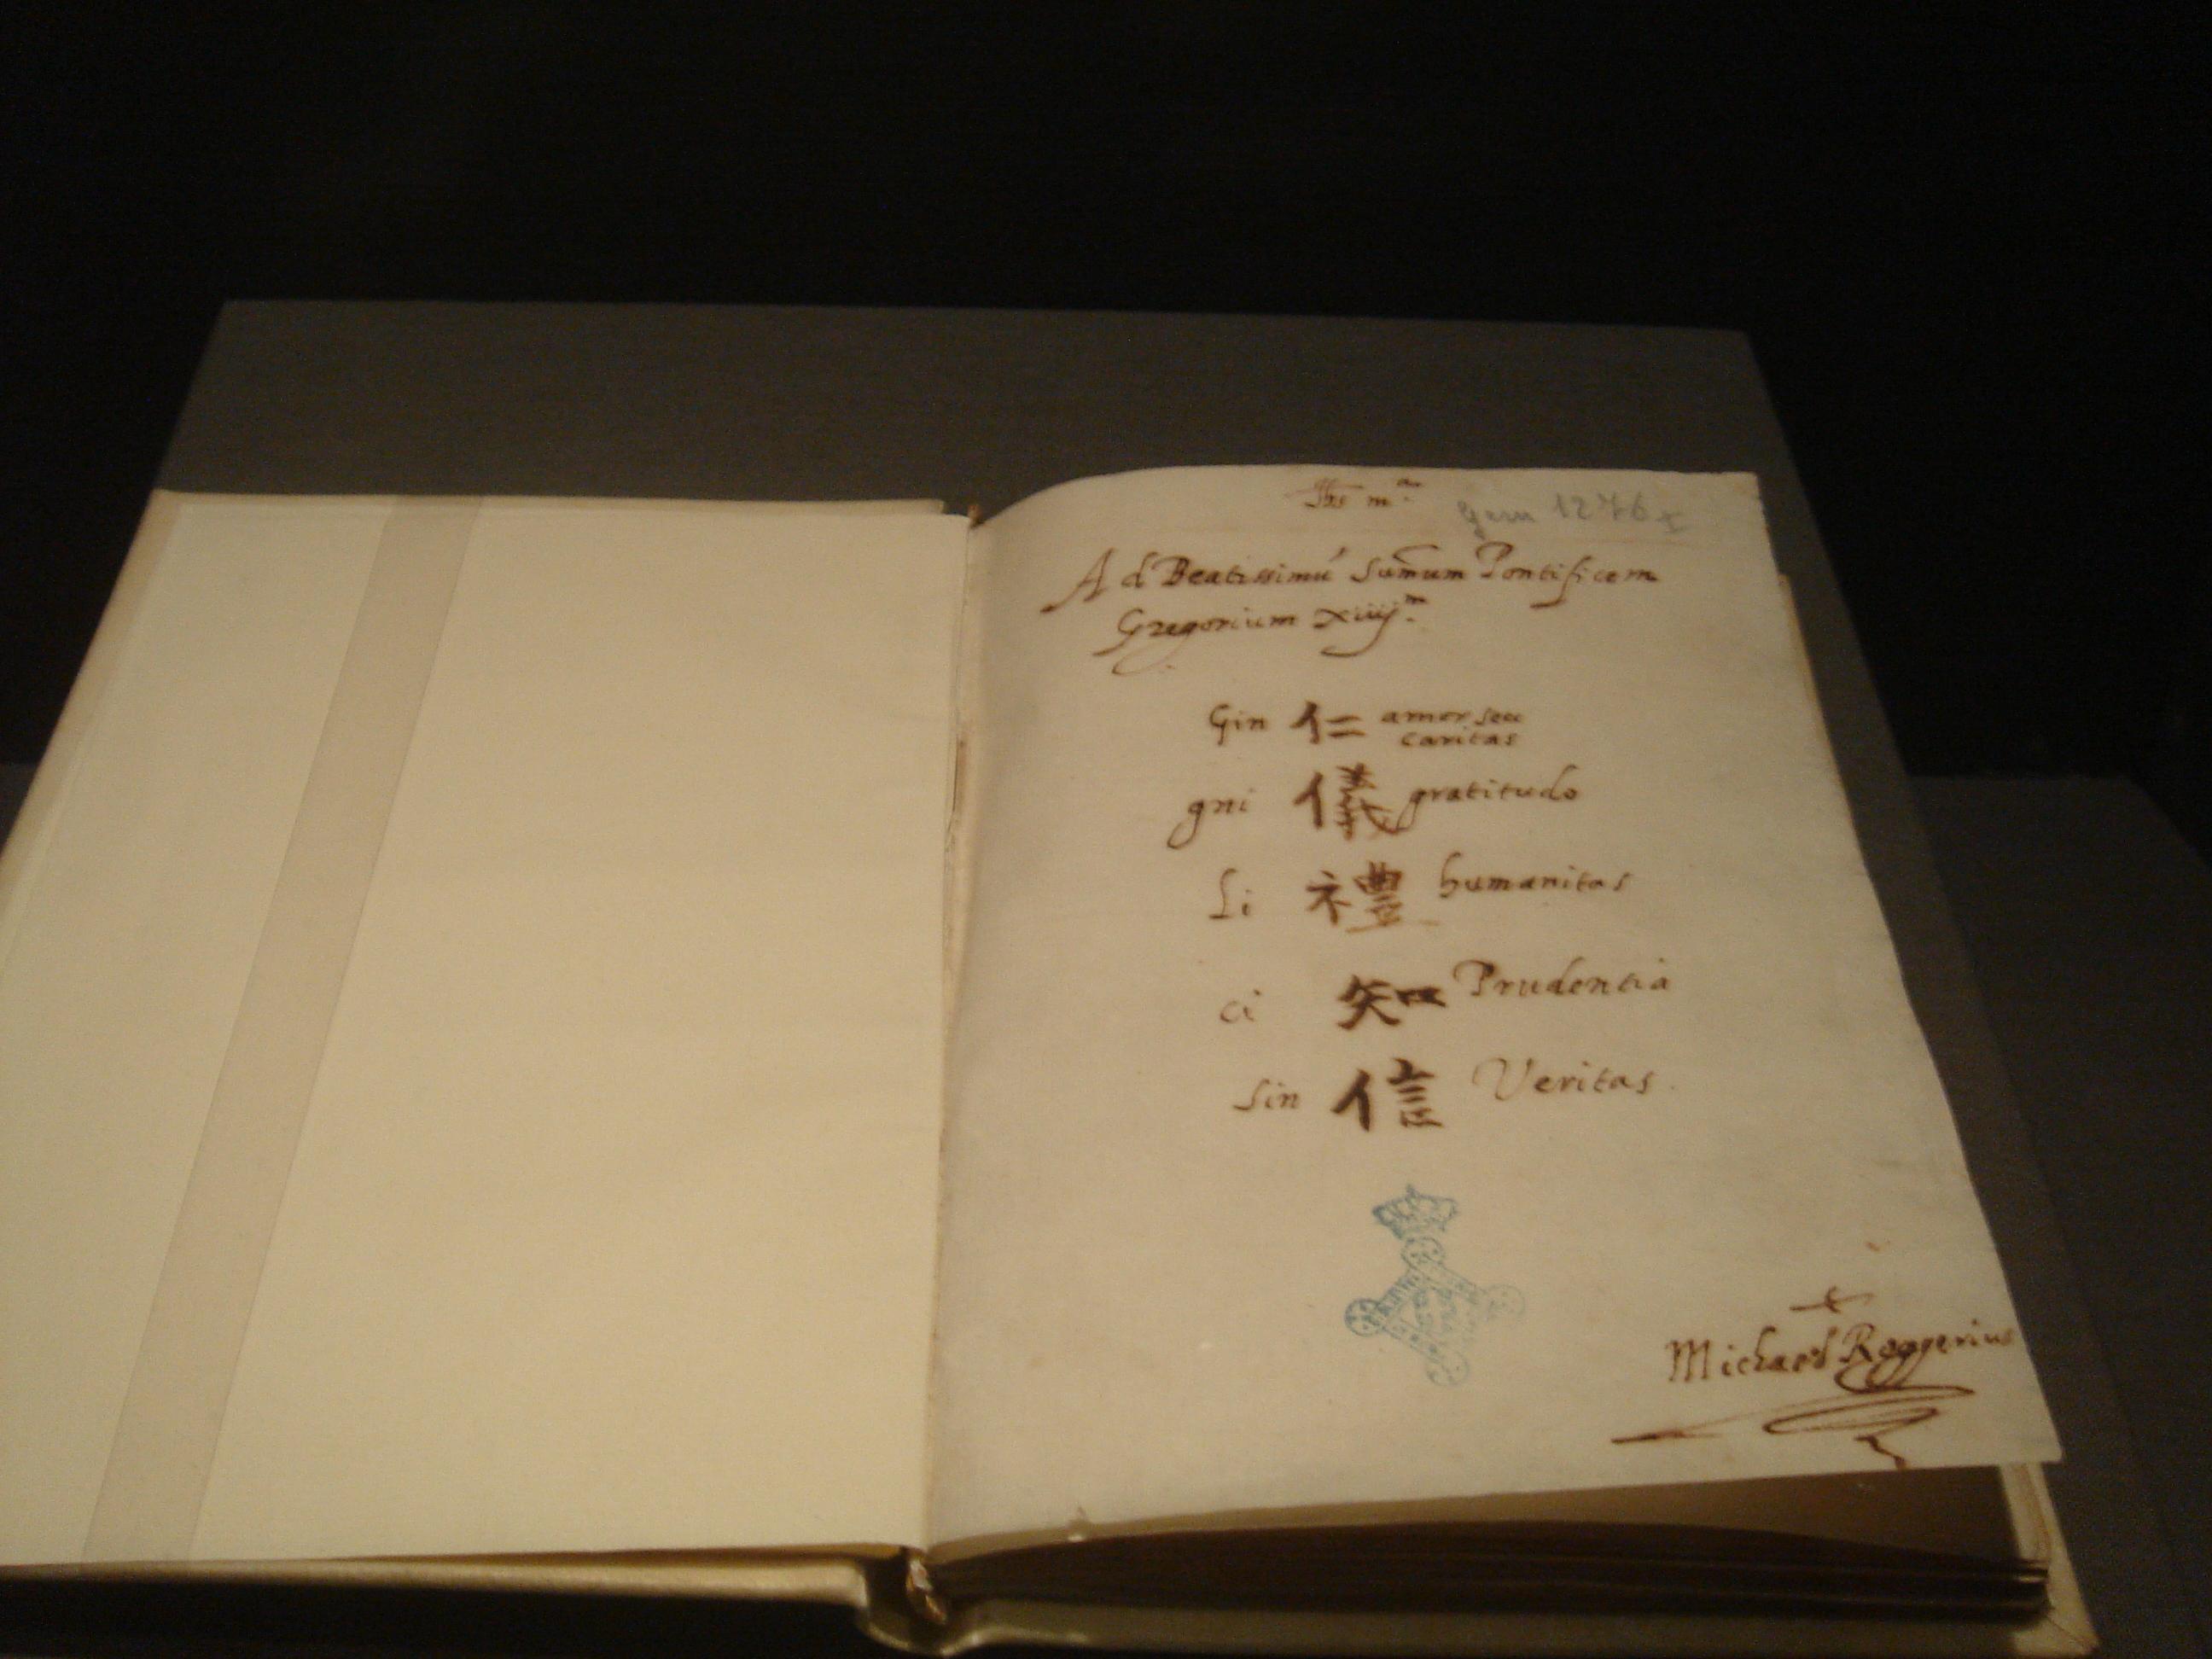 Jhs mª.
Gem 1276
Ad Beatissimu' Sum̄um Pontificem
Gregorium xiiijᵐ.
Gin 仁 amor seu
caritas
gni 儀 gratitudo
Li 禮 humanitas
ci 知 Prudentia
Sin 信 Veritas.
Michael Roggerius